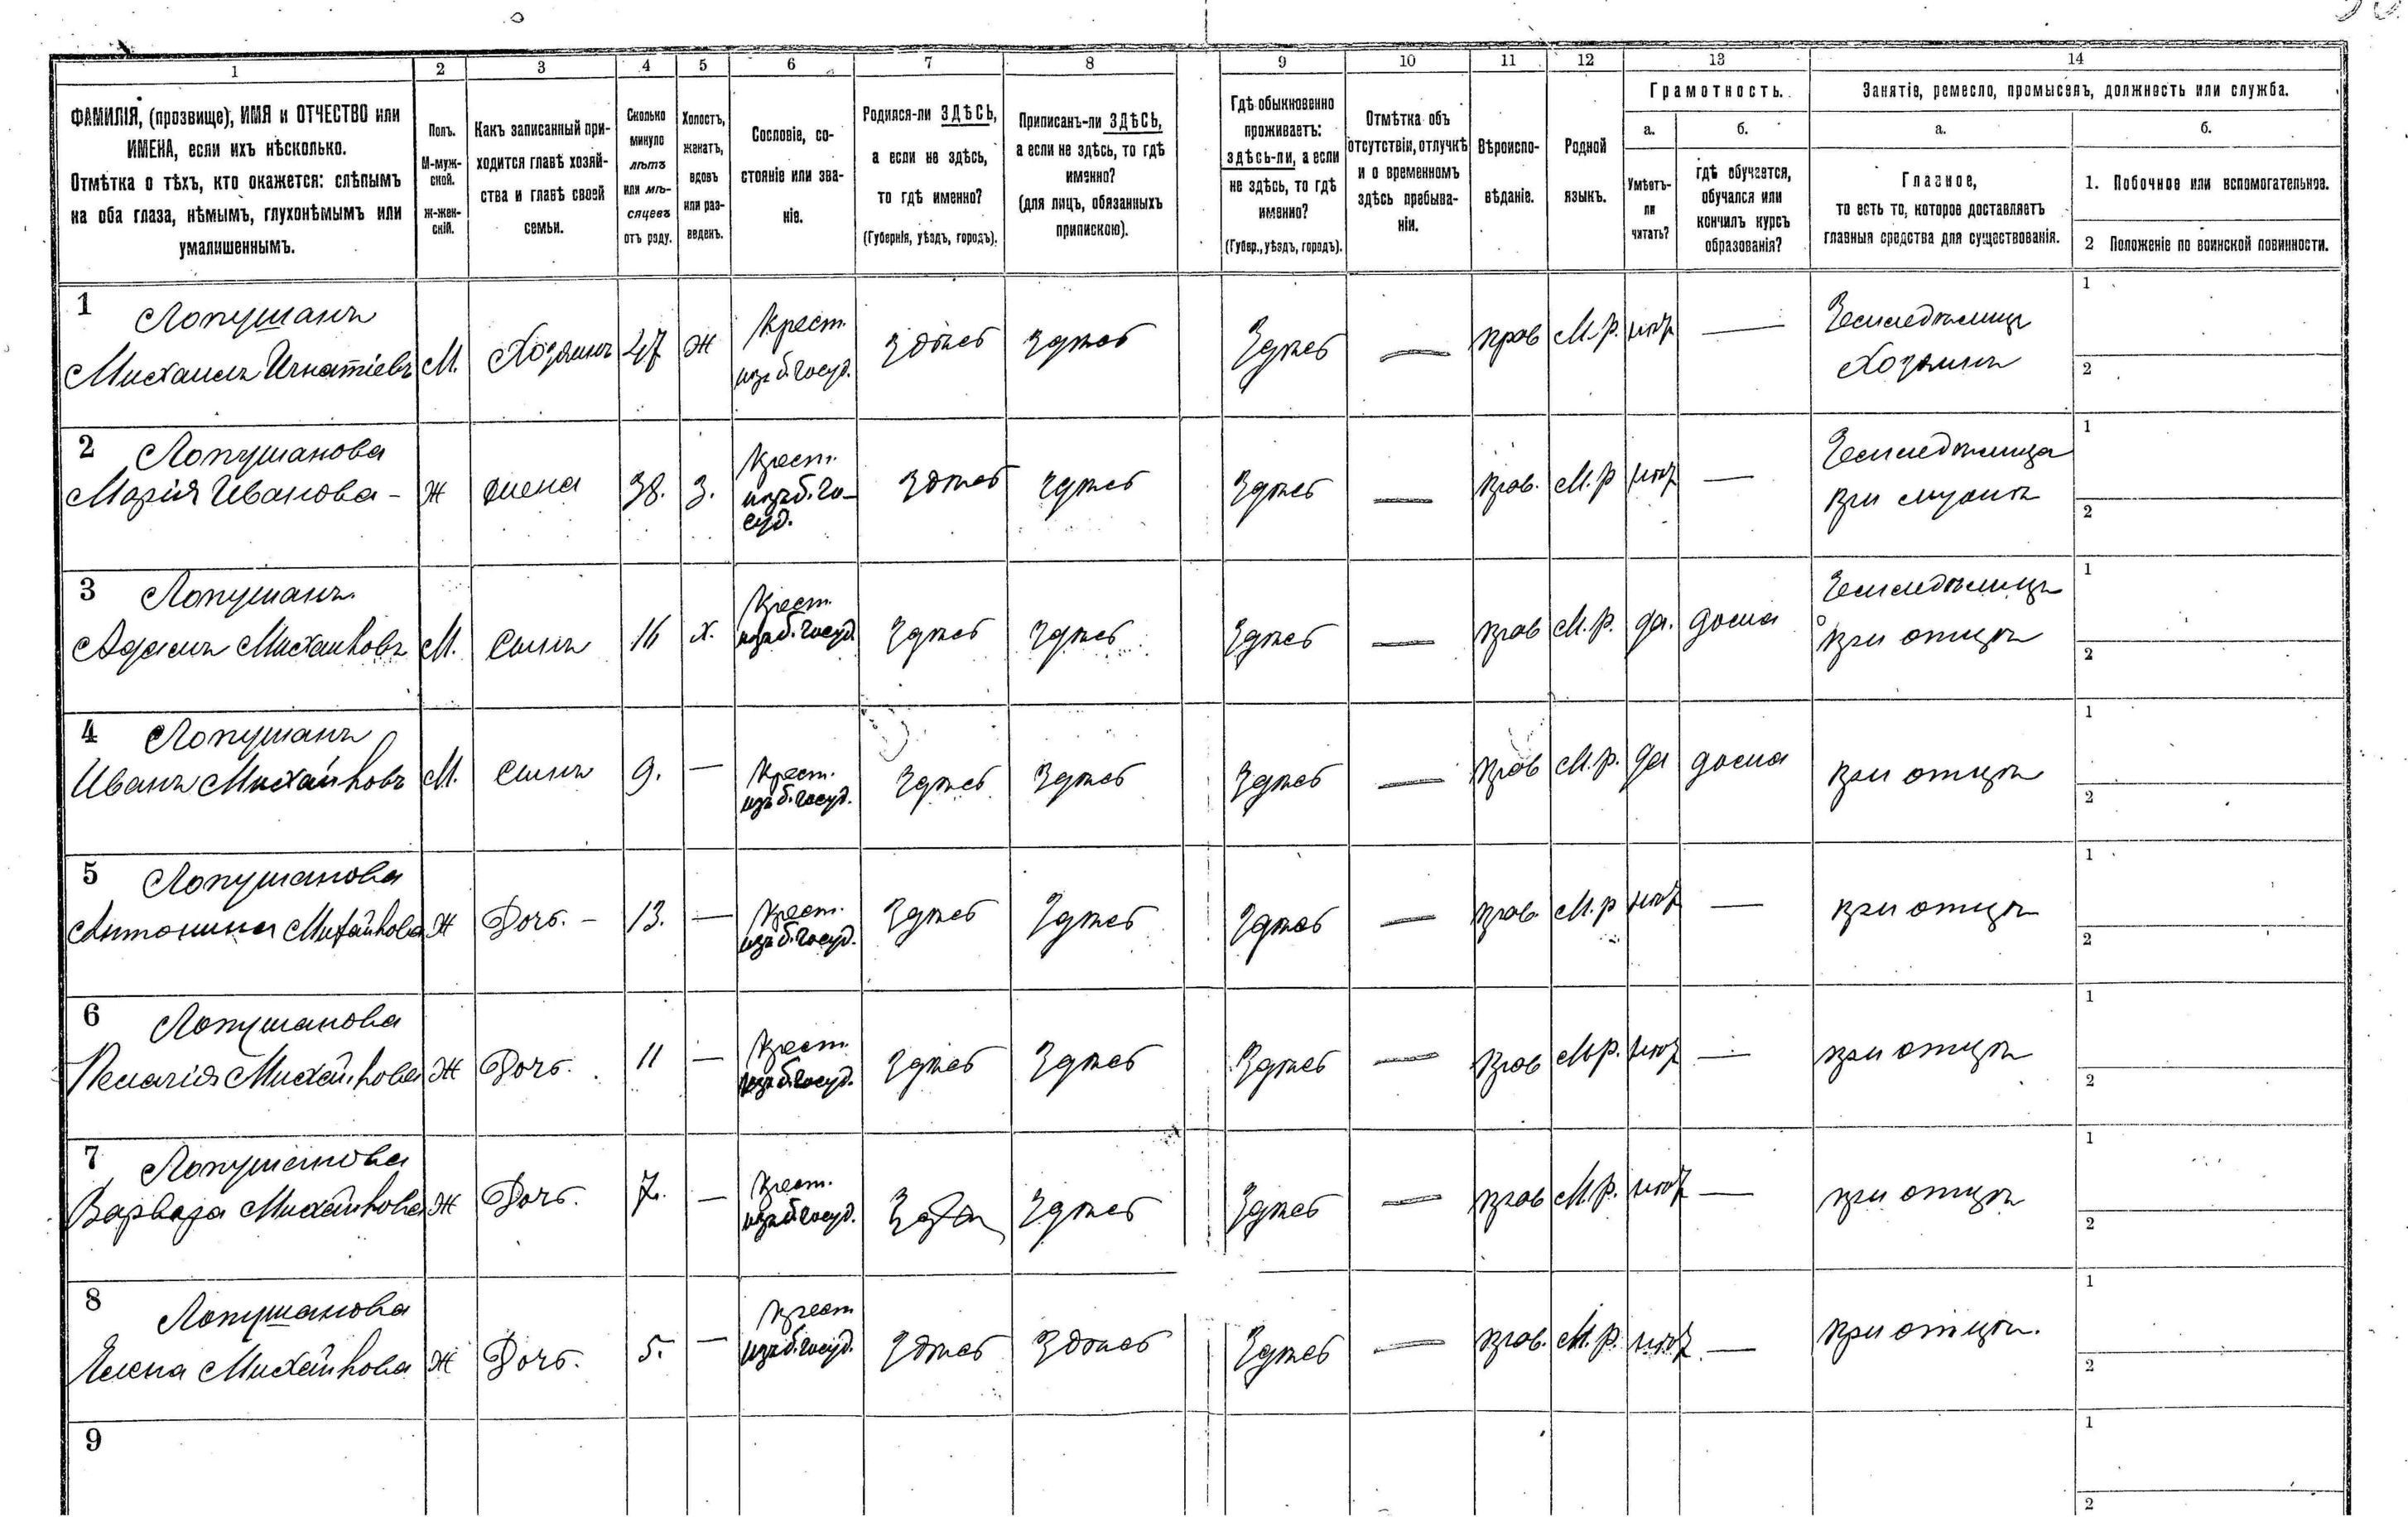 1 2 3 4 5 6 7 8 9 10 11 12 13 14
ФАМИЛІЯ, (прозвище), ИМЯ и ОТЧЕСТВО или
ИМЕНА, если ихъ нѣсколько.
Отмѣтка о тѣхъ, кто окажется: слѣпымъ
на оба глаза, нѣмымъ, глухонѣмымъ или
умалишеннымъ.
Полъ.
М-муж-
ской.
ж-жен-
скій.
Какъ записанный при-
ходится главѣ хозяй-
ства и главѣ своей
семьи.
Сколько
минуло
лѣтъ
или мѣ-
сяцевъ
отъ роду.
Холостъ,
женатъ,
вдовъ
или раз-
веденъ.
Сословіе, со-
стояніе или зва-
ніе.
Родился-ли ЗДѢСЬ,
а если не здѣсь,
то гдѣ именно?
(Губернія, уѣздъ, городъ).
Приписанъ-ли ЗДѢСЬ,
а если не здѣсь, то гдѣ
именно?
(для лицъ, обязанныхъ
припискою).
Гдѣ обыкновенно
проживаетъ:
здѣсь-ли, а если
не здѣсь, то гдѣ
именно?
(Губер., уѣздъ, городъ).
Отмѣтка объ
отсутствіи, отлучкѣ
и о временномъ
здѣсь пребыва-
ніи.
Вѣроиспо-
вѣданіе.
Родной
языкъ.
Грамотность.
а.
Умѣетъ-
ли
читать?
б.
гдѣ обучается,
обучался или
кончилъ курсъ
образованія?
Занятіе, ремесло, промыселъ, должность или служба.
а.
Главное,
то есть то, которое доставляетъ
главныя средства для существованія.
б.
1. Побочное или вспомогательное.
2 Положеніе по воинской повинности.
1 Лопушанъ
Михаилъ Игнатіевъ М. Хозяинъ 47 Ж
Крест.
изъ б. госуд.
Здѣсь Здѣсь Здѣсь — прав М.р. нѣт —
Земледѣлецъ
Хозяинъ
1
2
2 Лопушанова
Марія Иванова - Ж жена 38. З.
Крест.
изъ б. го-
суд.
Здѣсь здѣсь Здѣсь — прав. М.р нѣт —
Земледѣлица
при мужѣ
1
2
3 Лопушанъ
Адамъ Михайловъ М. Сынъ 16 х.
Крест.
изъ б. госуд.
Здѣсь Здѣсь Здѣсь — прав М.р. да. дома
Земледѣлецъ
при отцѣ
1
2
4 Лопушанъ
Иванъ Михайловъ М. Сынъ 9. —
Крест.
изъ б. госуд.
Здѣсь Здѣсь Здѣсь — прав М.р. да дома
при отцѣ
1
2
5 Лопушанова
Антонина Михайлова Ж Дочь. - 13. —
Крест.
изъ б. госуд.
Здѣсь Здѣсь Здѣсь — прав. М.р нѣт —
при отцѣ
1
2
6 Лопушанова
Пелагія Михайлова Ж Дочь. 11 —
Крест.
изъ б. госуд.
Здѣсь Здѣсь Здѣсь — прав М.р. нѣт —
при отцѣ
1
2
7 Лопушанова
Варвара Михайлова Ж Дочь. 7. —
Крест.
изъ б. госуд.
Здѣсь Здѣсь — прав М.р. нѣт —
при отцѣ
1
2
8 Лопушанова
Елена Михайлова Ж Дочь. 5. —
Крест
изъ б. госуд.
Здѣсь Здѣсь Здѣсь — прав. М.р. нѣт —
при отцѣ.
1
2
9
1
2